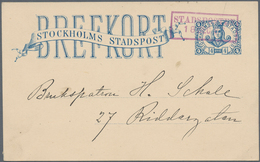 BREFKORT
STOCKHOLMS STADSPOST
Bruks­patron H. Schale
27 Riddargatan